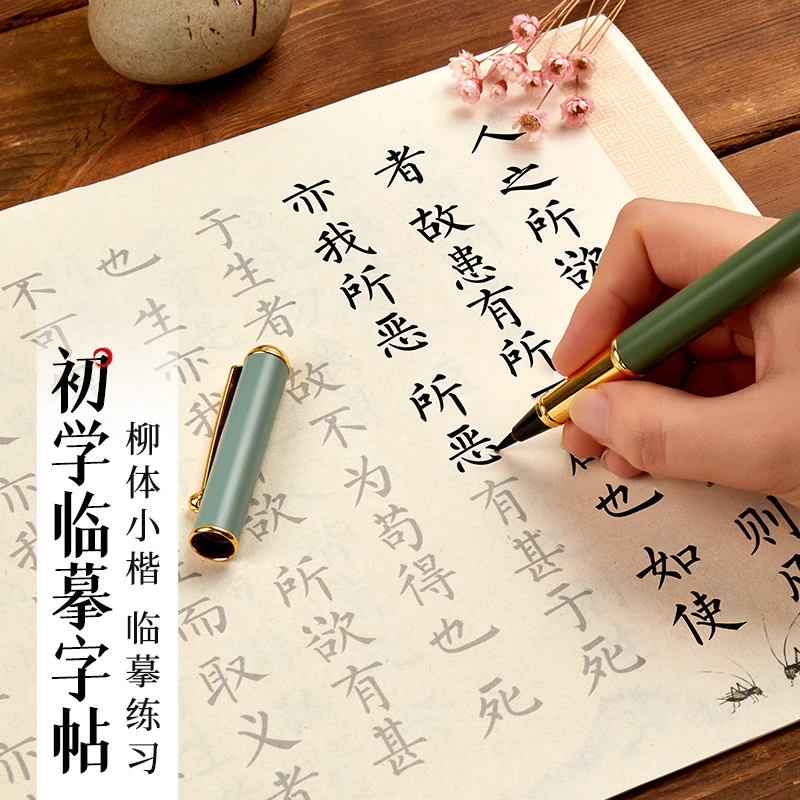 人之所欲则凡
者故患有所也如使
亦我所恶所恶有甚于死
于生者故不为苟得也死
也生亦我欲所欲有甚
不可而取义者
亦我
初学临摹字帖
柳体小楷 临摹练习